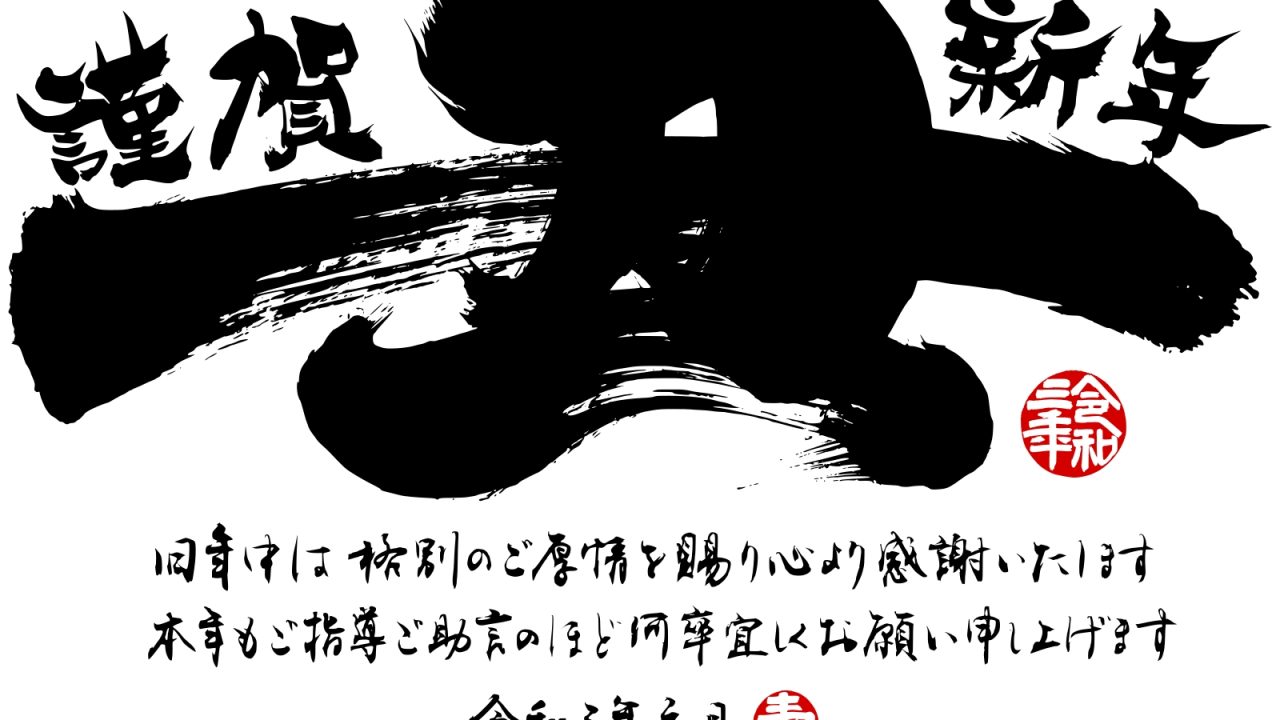 謹賀
新年
丑
令和三年
旧年中は 格別のご厚情を賜り心より感謝いたします
本年もご指導ご助言のほど何卒宜しくお願い申し上げます
令和三年元旦